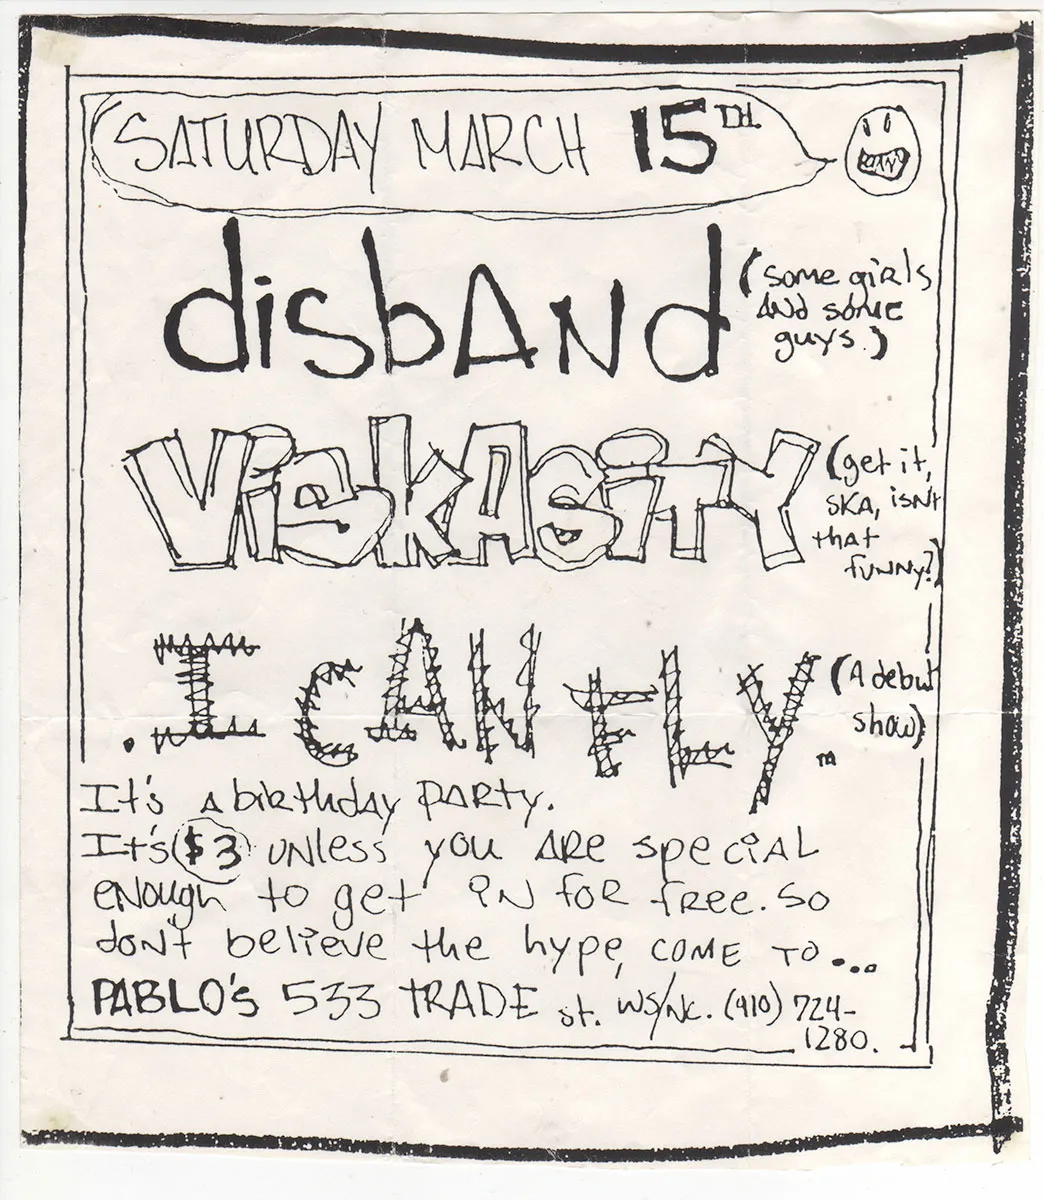 SATURDAY MARCH 15TH.
disbANd
(some girls
ANd some
guys.)
ViSkASiTY
(get it,
SKA, isn't
that
funny?)
.I CAN FLY.
(A debut
show)
It's A birthday PARTY.
It's $3 UNless you ARe speciAL
eNough to get iN foR fRee. So
don't believe the hype, COME TO...
PABLO'S 533 TRADE st. WS/NC. (910) 724-
1280.